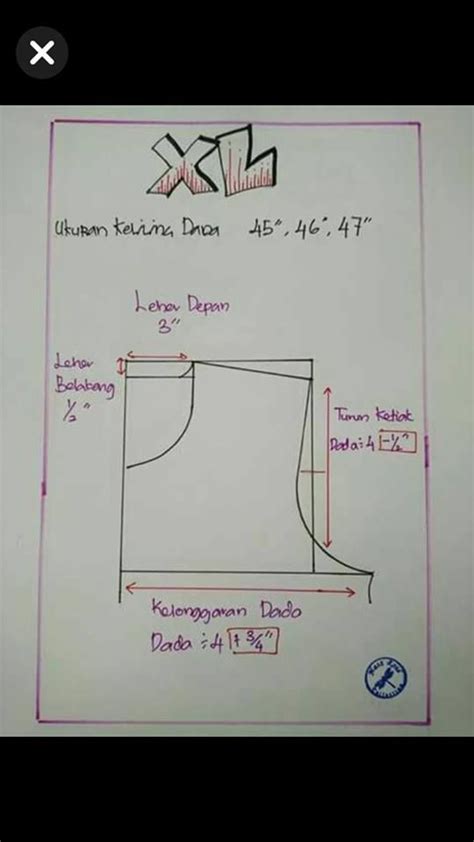 XL
Ukuran Keliling Dada 45", 46", 47"
Leher Depan
3"
Leher
Belakang
1/2"
Turun Ketiak
Dada ÷ 4 -1/2"
Kelonggaran Dada
Dada ÷ 4 + 3/4"